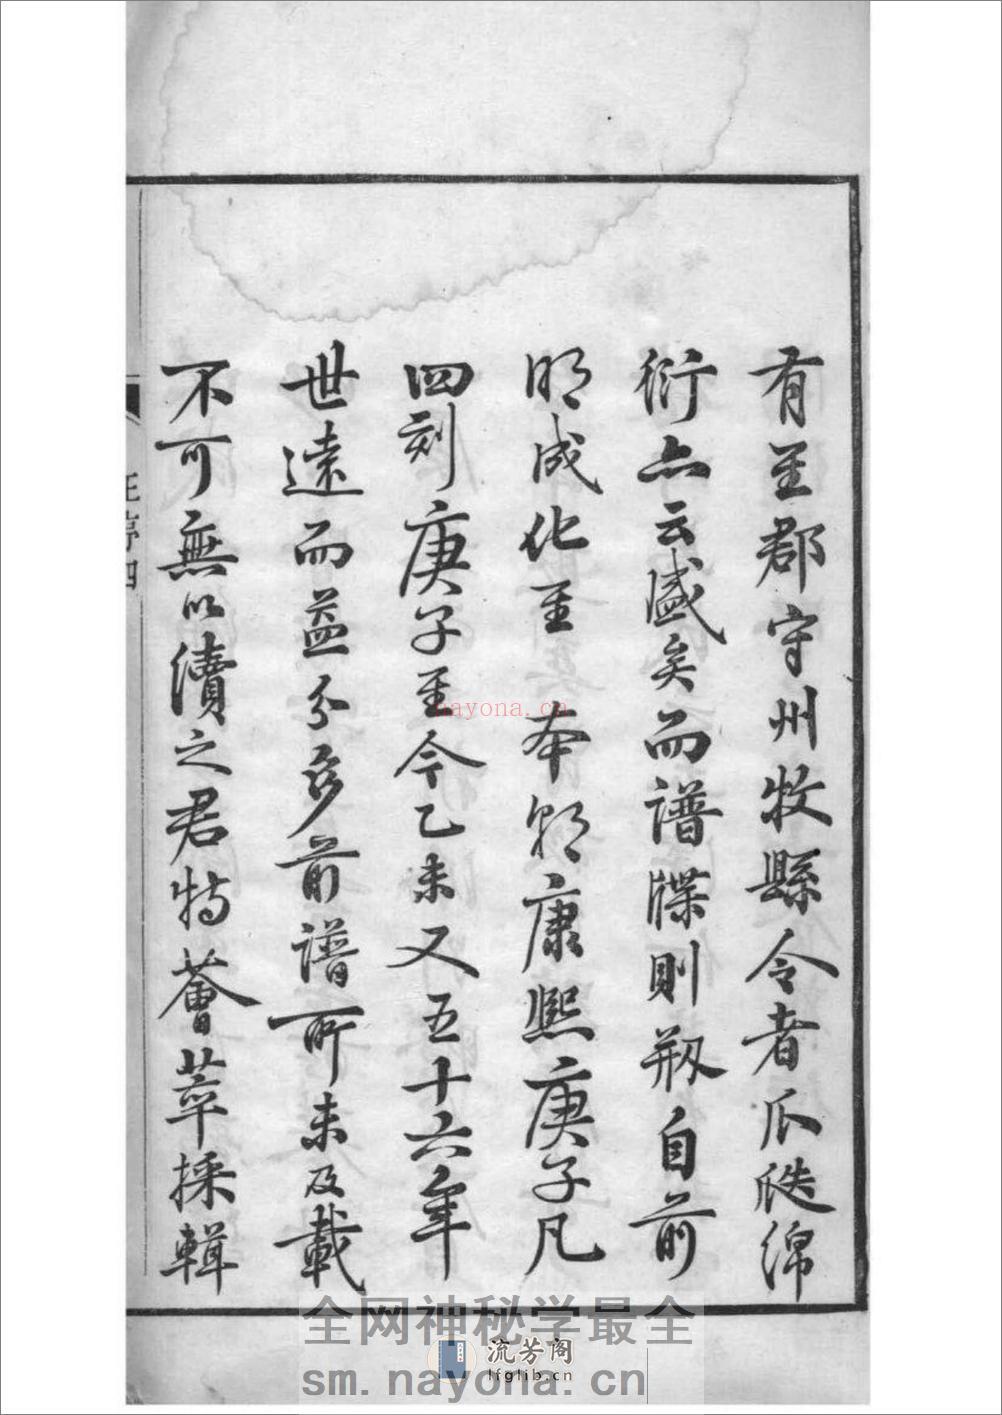 有至郡守州牧縣令者爪瓞綿
衍亦云盛矣而譜牒則剏自前
明成化至本朝康熙庚子凡
四刻庚子至今乙未又五十六年
世遠而益分多前譜所未及載
不可無以續之君特薈萃採輯
nayona.cn
全网神秘学最全
流芳阁
lfglib.cn
sm.nayona.cn